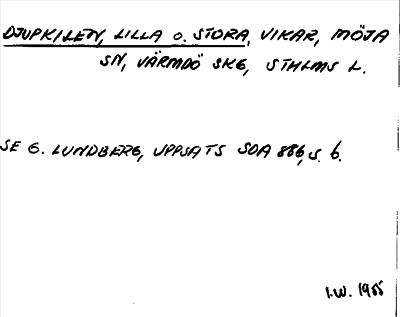 DJUPKILEN, LILLA o. STORA, VIKAR, MÖJA
SN, VÄRMDÖ SKG, STHLMS L.
SE G. LUNDBERG, UPPSATS SOA 886, s. 6.
I.W. 1955